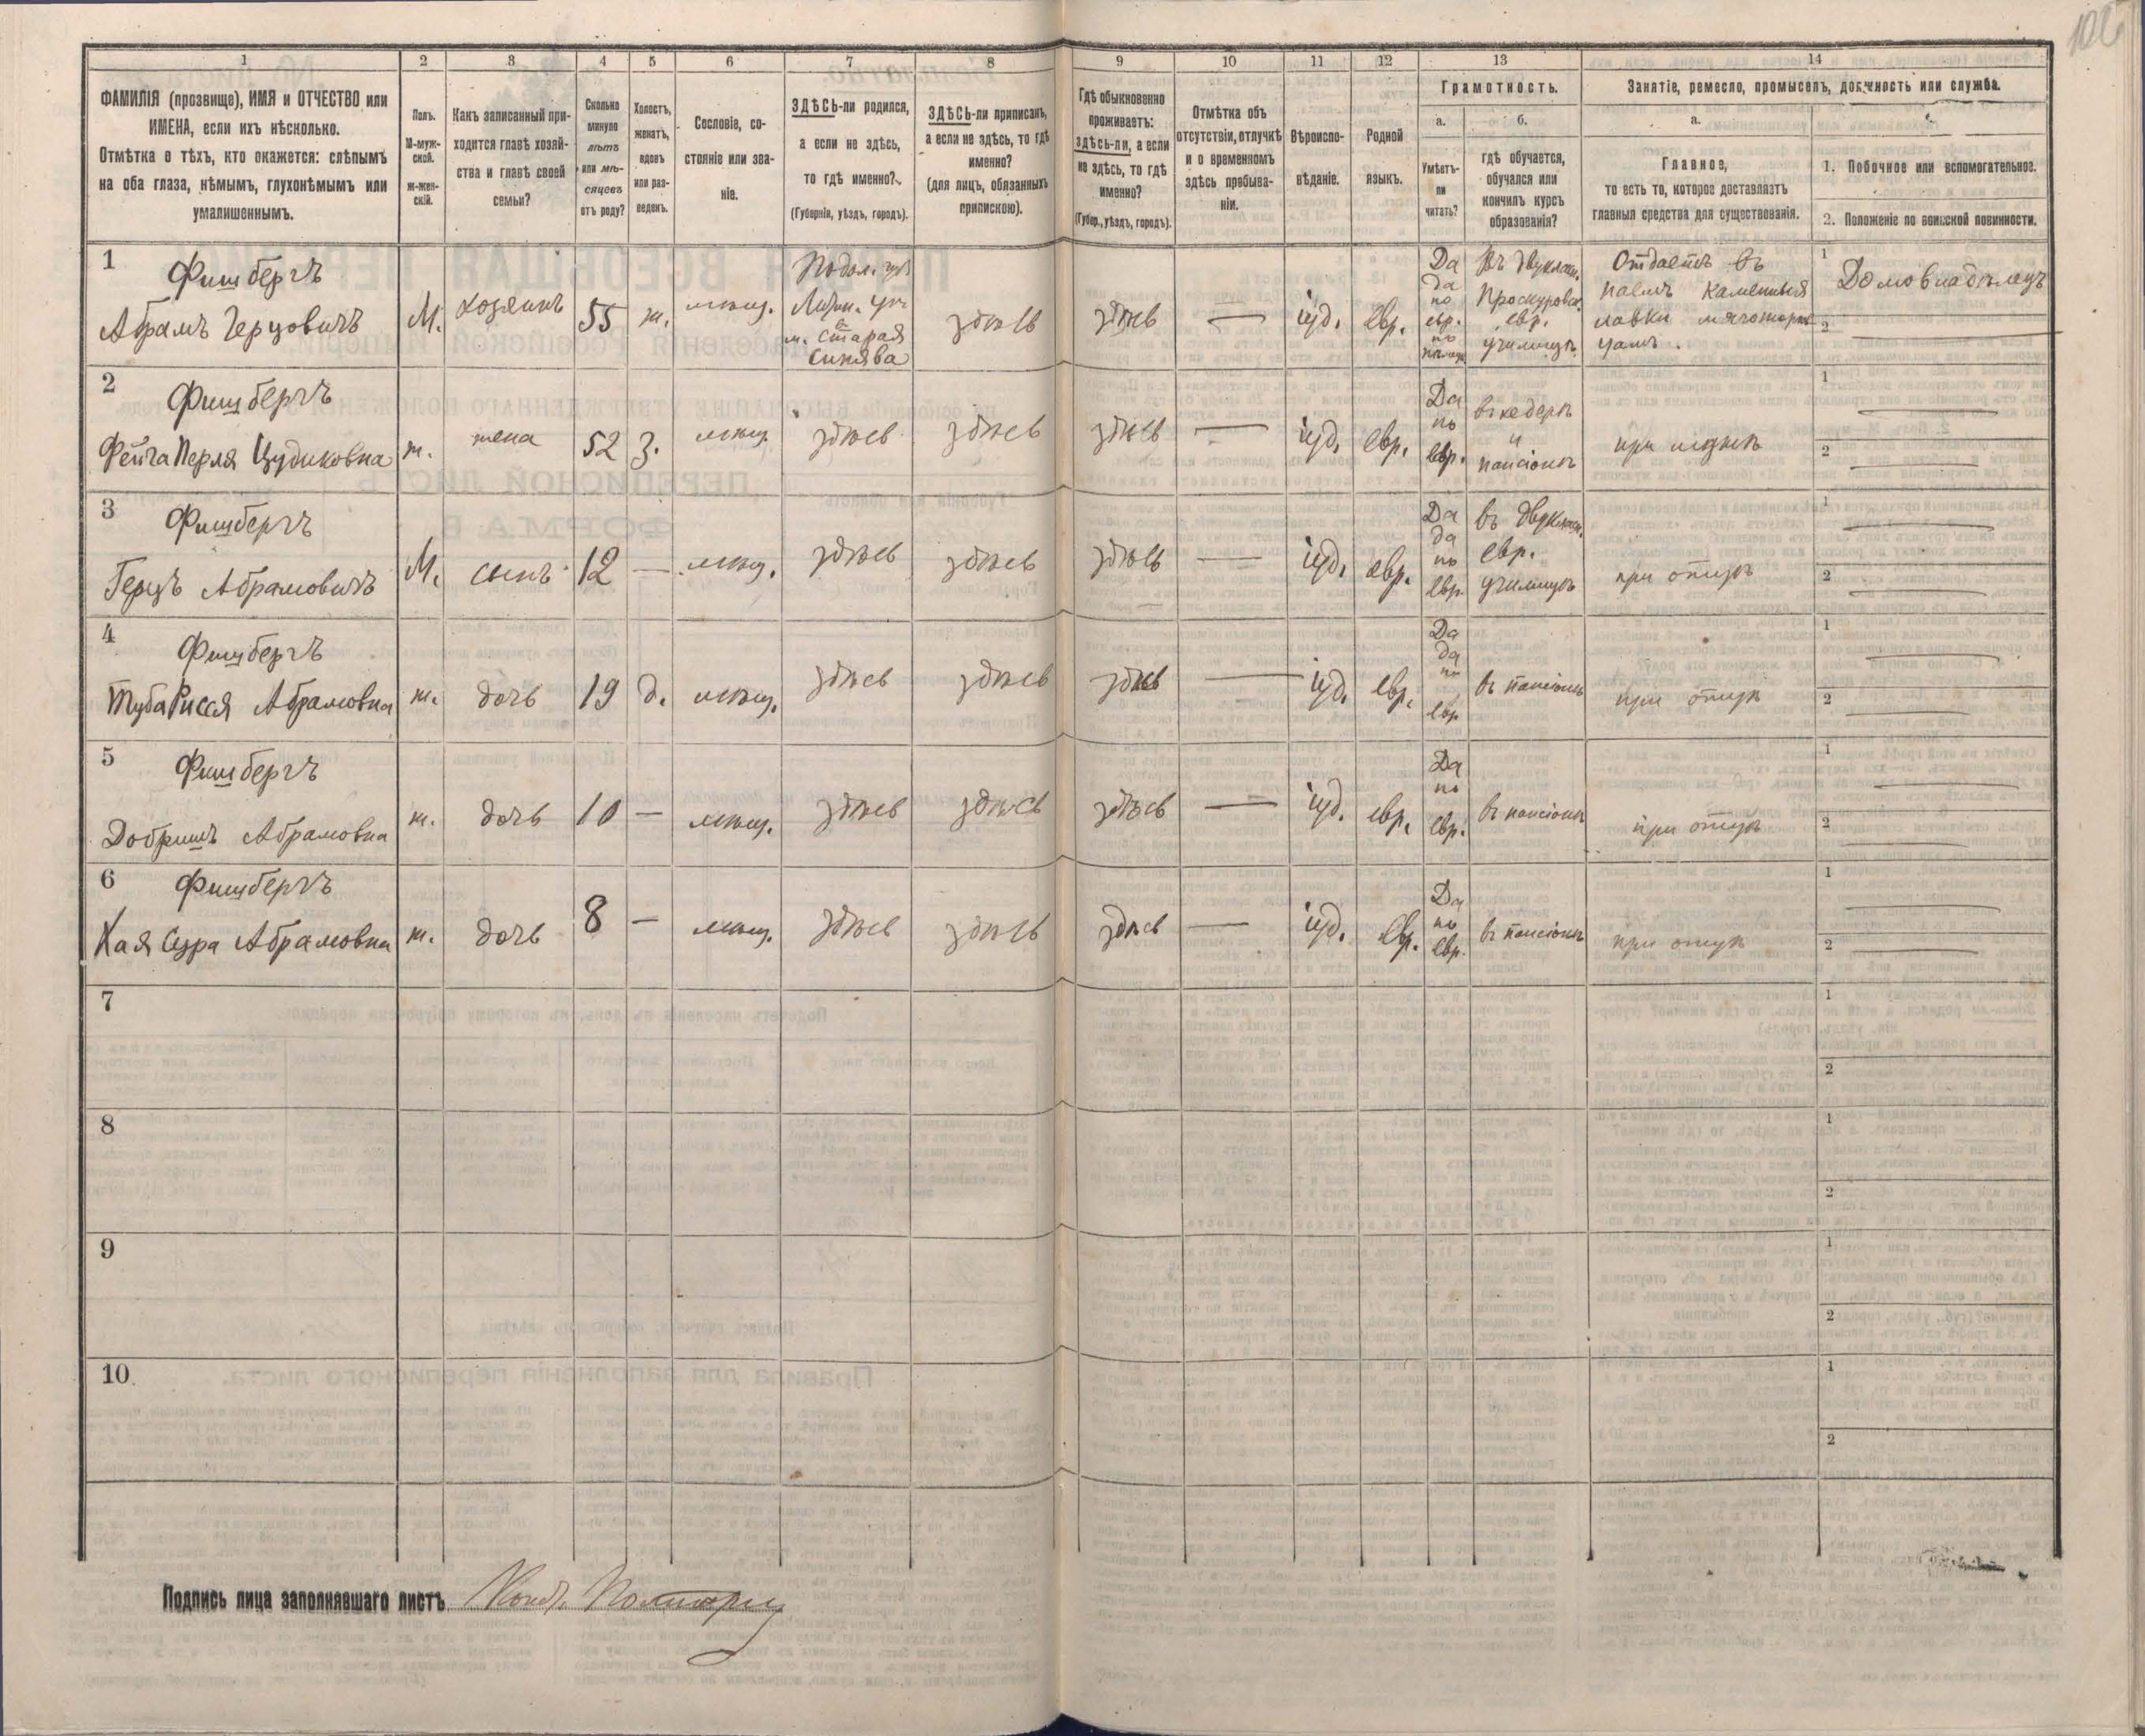 106
1 2 3 4 5 6 7 8 9 10 11 12 13 14
ФАМИЛІЯ (прозвище), ИМЯ и ОТЧЕСТВО или
ИМЕНА, если ихъ нѣсколько.
Отмѣтка о тѣхъ, кто окажется: слѣпымъ
на оба глаза, нѣмымъ, глухонѣмымъ или
умалишеннымъ.
Полъ.
М-муж-
ской.
ж-жен-
скій.
Какъ записанный при-
ходится главѣ хозяй-
ства и главѣ своей
семьи?
Сколько
минуло
лѣтъ
или мѣ-
сяцевъ
отъ роду?
Холостъ,
женатъ,
вдовъ
или раз-
веденъ.
Сословіе, со-
стояніе или зва-
ніе.
ЗДѢСЬ-ли родился,
а если не здѣсь,
то гдѣ именно?
(Губернія, уѣздъ, городъ).
ЗДѢСЬ-ли приписанъ,
а если не здѣсь, то гдѣ
именно?
(для лицъ, обязанныхъ
припискою).
Гдѣ обыкновенно
проживаетъ:
здѣсь-ли, а если
не здѣсь, то гдѣ
именно?
(Губер., уѣздъ, городъ).
Отмѣтка объ
отсутствіи, отлучкѣ
и о временномъ
здѣсь пребыва-
ніи.
Вѣроиспо-
вѣданіе.
Родной
языкъ.
Грамотность.
а.
Умѣетъ-
ли
читать?
б.
гдѣ обучается,
обучался или
кончилъ курсъ
образованія?
Занятіе, ремесло, промыселъ, должность или служба.
а.
Главное,
то есть то, которое доставляетъ
главныя средства для существованія.
1. Побочное или вспомогательное.
2. Положеніе по воинской повинности.
1
Фишбергъ
Абрамъ Герцовичъ
М.
хозяинъ
55
ж.
мѣщ.
Подол. губ
Литин. у.
м. Старая
Синява
здѣсь
здѣсь
—
іуд.
евр.
Да
да
по
евр.
по
Въ двуклас.
Проскуровск.
евр.
училищѣ
Отдаетъ въ
наемъ каменныя
лавки
1
Домовладѣлецъ
2
2
Фишбергъ
Фейга Перля Цудиковна
ж.
жена
52
з.
мѣщ.
здѣсь
здѣсь
здѣсь
—
іуд.
евр.
Да
по
евр.
въ хедерѣ
и
пансіонѣ
при мужѣ
1
2
3
Фишбергъ
Герцъ Абрамовичъ
М.
сынъ
12
—
мѣщ.
здѣсь
здѣсь
здѣсь
—
іуд.
евр.
Да
да
по
евр.
въ двуклас.
евр.
училищѣ
при отцѣ
1
2
4
Фишбергъ
Туба Рисся Абрамовна
ж.
дочь
19
д.
мѣщ.
здѣсь
здѣсь
здѣсь
—
іуд.
евр.
Да
да
по
евр
въ пансіонѣ
при отцѣ
1
2
5
Фишбергъ
Добришъ Абрамовна
ж.
дочь
10
—
мѣщ.
здѣсь
здѣсь
здѣсь
—
іуд.
евр.
Да
по
евр.
въ пансіонѣ
при отцѣ
1
2
6
Фишбергъ
Хая Сура Абрамовна
ж.
дочь
8
—
мѣщ.
здѣсь
здѣсь
здѣсь
—
іуд.
евр.
Да
по
евр.
въ пансіонѣ
при отцѣ
1
2
7
1
2
8
1
2
9
1
2
10
1
2
Подпись лица заполнявшаго листъ